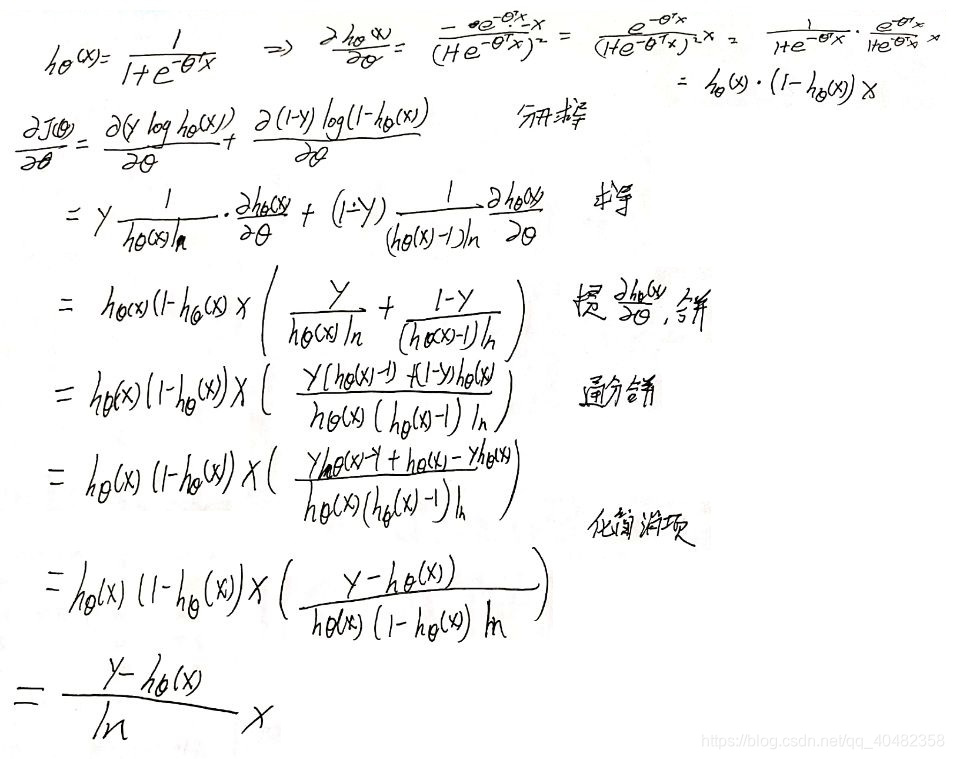 hθ(x) = 1/(1+e^(-θᵀx)) ⇒ ∂hθ(x)/∂θ = (-e^(-θᵀx)·-x)/(1+e^(-θᵀx))² = e^(-θᵀx)/(1+e^(-θᵀx))² x = 1/(1+e^(-θᵀx)) · e^(-θᵀx)/(1+e^(-θᵀx)) x
= hθ(x)·(1-hθ(x)) x
∂J(θ)/∂θ = ∂(y log hθ(x))/∂θ + ∂(1-y) log(1-hθ(x))/∂θ 分开求导
= y 1/(hθ(x) ln) · ∂hθ(x)/∂θ + (1-y) 1/((hθ(x)-1) ln) ∂hθ(x)/∂θ 求导
= hθ(x)(1-hθ(x) x ( y/(hθ(x) ln) + (1-y)/((hθ(x)-1) ln) ) 提 ∂hθ(x)/∂θ, 合并
= hθ(x)(1-hθ(x)) x ( (y(hθ(x)-1) + (1-y)hθ(x))/(hθ(x)(hθ(x)-1) ln) ) 通分合并
= hθ(x)(1-hθ(x)) x ( (yhθ(x)-y+hθ(x)-yhθ(x))/(hθ(x)(hθ(x)-1) ln) )
化简消项
= hθ(x)(1-hθ(x)) x ( (y-hθ(x))/(hθ(x)(1-hθ(x)) ln) )
= (y-hθ(x))/ln x
https://blog.csdn.net/qq_40482358